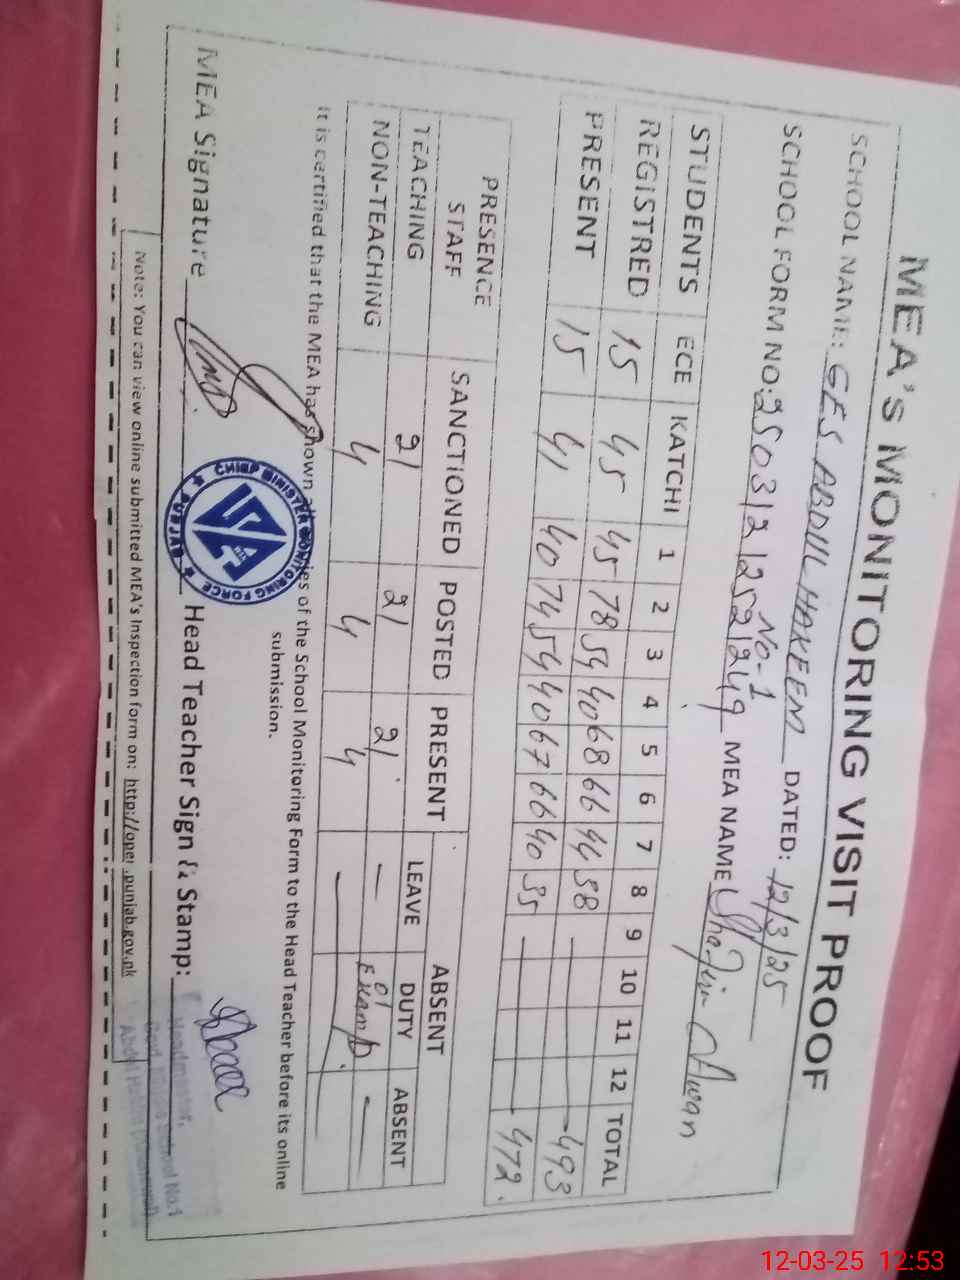 MEA'S MONITORING VISIT PROOF
SCHOOL NAME: GES ABDUL HAKEEM DATED: 12/3/25
No-1
SCHOOL FORM NO: 25031212521249 MEA NAME Awan
STUDENTS ECE KATCHI 1 2 3 4 5 6 7 8 9 10 11 12 TOTAL
REGISTRED 15 45 45 78 54 40 68 66 44 38 — 493
PRESENT 15 41 40 74 54 40 67 66 40 35 — 472.
PRESENCE STAFF SANCTIONED POSTED PRESENT ABSENT
LEAVE DUTY ABSENT
TEACHING 21 21 21 — 01 Exam —
NON-TEACHING 4 4 4 — —
It is certified that the MEA has shown all of the School Monitoring Form to the Head Teacher before its online
submission.
MEA Signature Head Teacher Sign & Stamp:
CHIEF MINISTER MONITORING FORCE
PUNJAB
MEA
Headmaster,
School No.1
Note: You can view online submitted MEA's Inspection form on: http://open.punjab.gov.pk
12-03-25 12:53